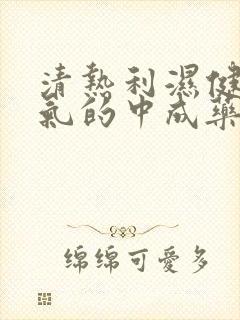 清熱利濕健
氣的中成藥
綿綿可愛多